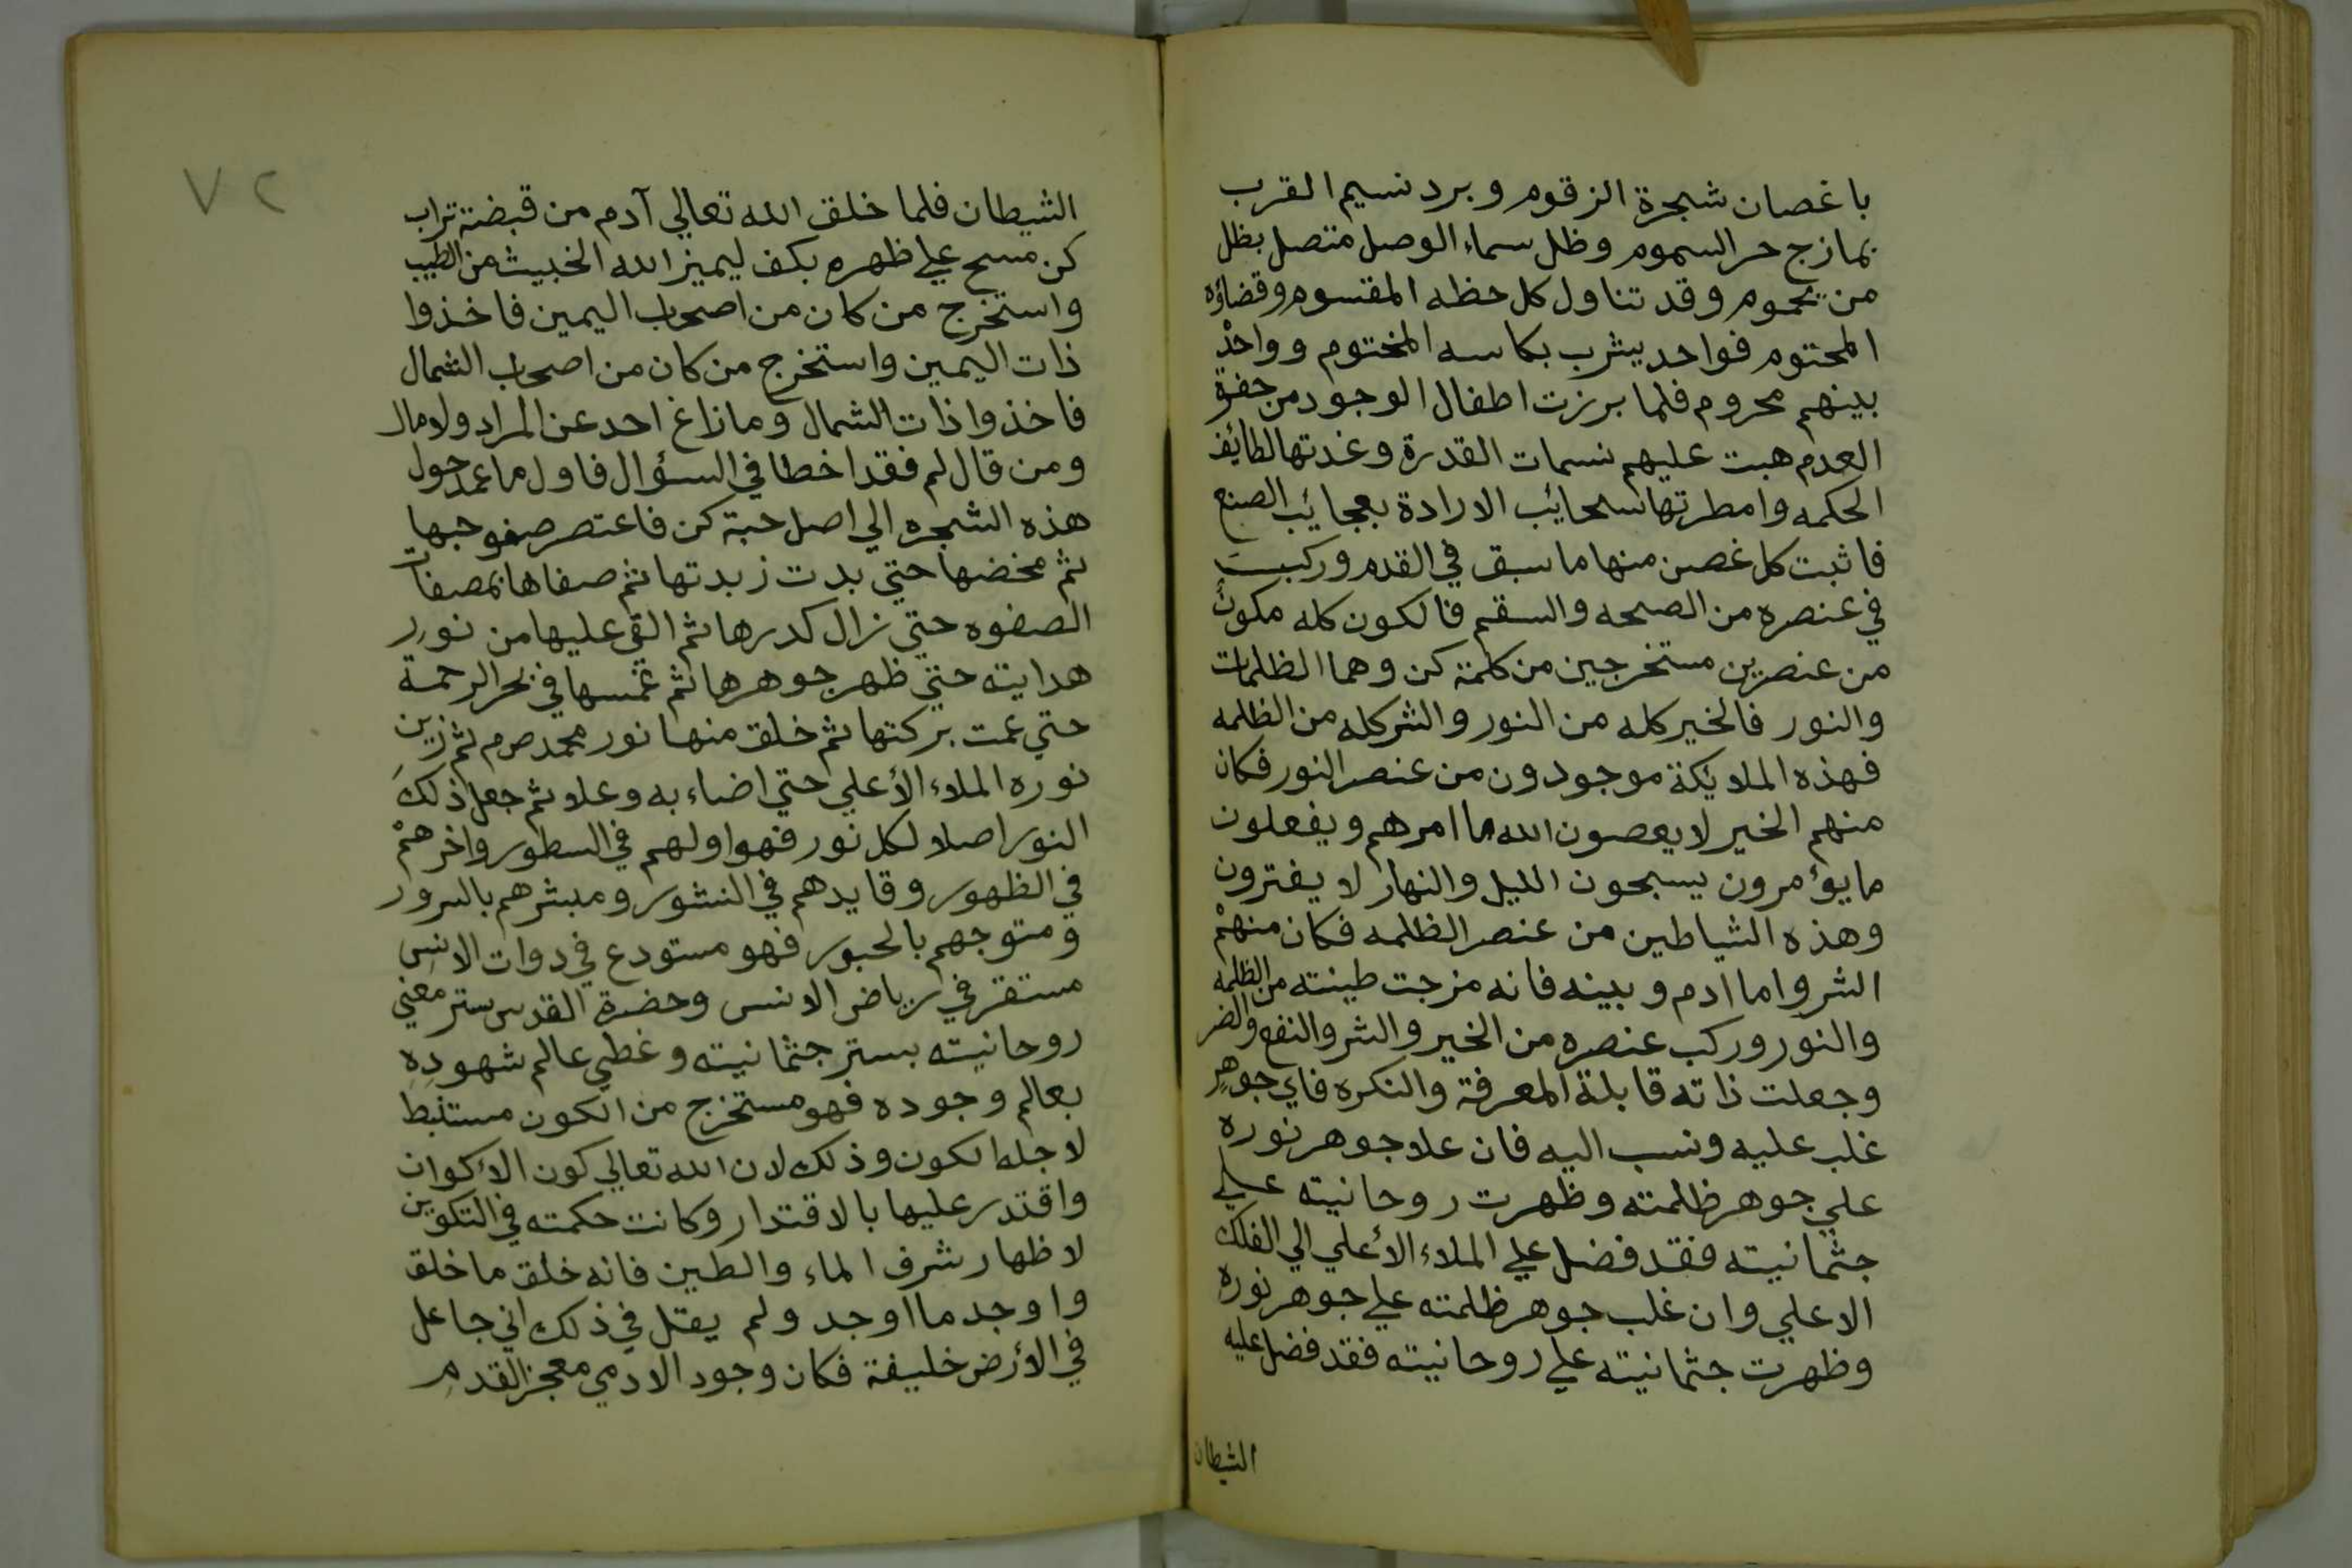 باغصان شجرة الزقوم وبرد نسيم القرب
بمازج حر السموم وظل سماء الوصل متصل بظل
من يحموم وقد تناول كل حظه المقسوم وقضاؤه
المحتوم فواحد يشرب بكاسه المختوم وواحد
بينهم محروم فلما برزت اطفال الوجود من حفوة
العدم هبت عليهم نسمات القدرة وغدتها لطائف
الحكمه وامطرتها سحائب الارادة بعجائب الصنع
فاثبت كل غصن منها ما سبق في القدم وركبت
في عنصره من الصحه والسقم فالكون كله مكون
من عنصرين مستخرجين من كلمة كن وهما الظلمات
والنور فالخير كله من النور والشر كله من الظلمه
فهذه الملايكة موجودون من عنصر النور فكان
منهم الخير لا يعصون الله ما امرهم ويفعلون
ما يؤمرون يسبحون الليل والنهار لا يفترون
وهذه الشياطين من عنصر الظلمه فكان منهم
الشر واما ادم وبينه فانه مزجت طينته من الظلمه
والنور وركب عنصره من الخير والشر والنفع والضر
وجعلت ذاته قابلة المعرفة والنكره فاي جوهر
غلب عليه ونسب اليه فان علا جوهر نوره
علي جوهر ظلمته وظهرت روحانيته علي
جثمانيته فقد فضل علي الملاء الأعلي الي الفلك
الاعلي وان غلب جوهر ظلمته علي جوهر نوره
وظهرت جثمانيته علي روحانيته فقد فضل عليه
الشيطان
٧٢
الشيطان فلما خلق الله تعالي آدم من قبضة تراب
كن مسح علي ظهره بكف ليميز الله الخبيث من الطيب
واستخرج من كان من اصحاب اليمين فاخذوا
ذات اليمين واستخرج من كان من اصحاب الشمال
فاخذوا ذات الشمال وما زاغ احد عن المراد ولا مال
ومن قال لم فقد اخطا في السؤال فاول ما عمد حول
هذه الشجره الي اصل حبة كن فاعتصر صفو حبها
ثم مخضها حتي بدت زبدتها ثم صفاها بمصفات
الصفوه حتي زال كدرها ثم القي عليها من نور
هدايته حتي ظهر جوهرها ثم غمسها في بحر الرحمة
حتي عمت بركتها ثم خلق منها نور محمد صم ثم زين
نوره الملاء الأعلي حتي اضاء به وعلا ثم جعل ذلك
النور اصلا لكل نور فهو اولهم في السطور واخرهم
في الظهور وقايدهم في النشور ومبشرهم بالسرور
ومتوجهم بالحبور فهو مستودع في دوات الانس
مستقر في رياض الانس وحضرة القدس ستر معني
روحانيته بستر جثمانيته وغطي عالم شهوده
بعالم وجوده فهو مستخرج من الكون مستنبط
لاجله الكون وذلك لان الله تعالي كون الأكوان
واقتدر عليها بالاقتدار وكانت حكمته في التكوين
لاظهار شرف الماء والطين فانه خلق ما خلق
واوجد ما اوجد ولم يقل في ذلك اني جاعل
في الأرض خليفة فكان وجود الادمي معجز القدم